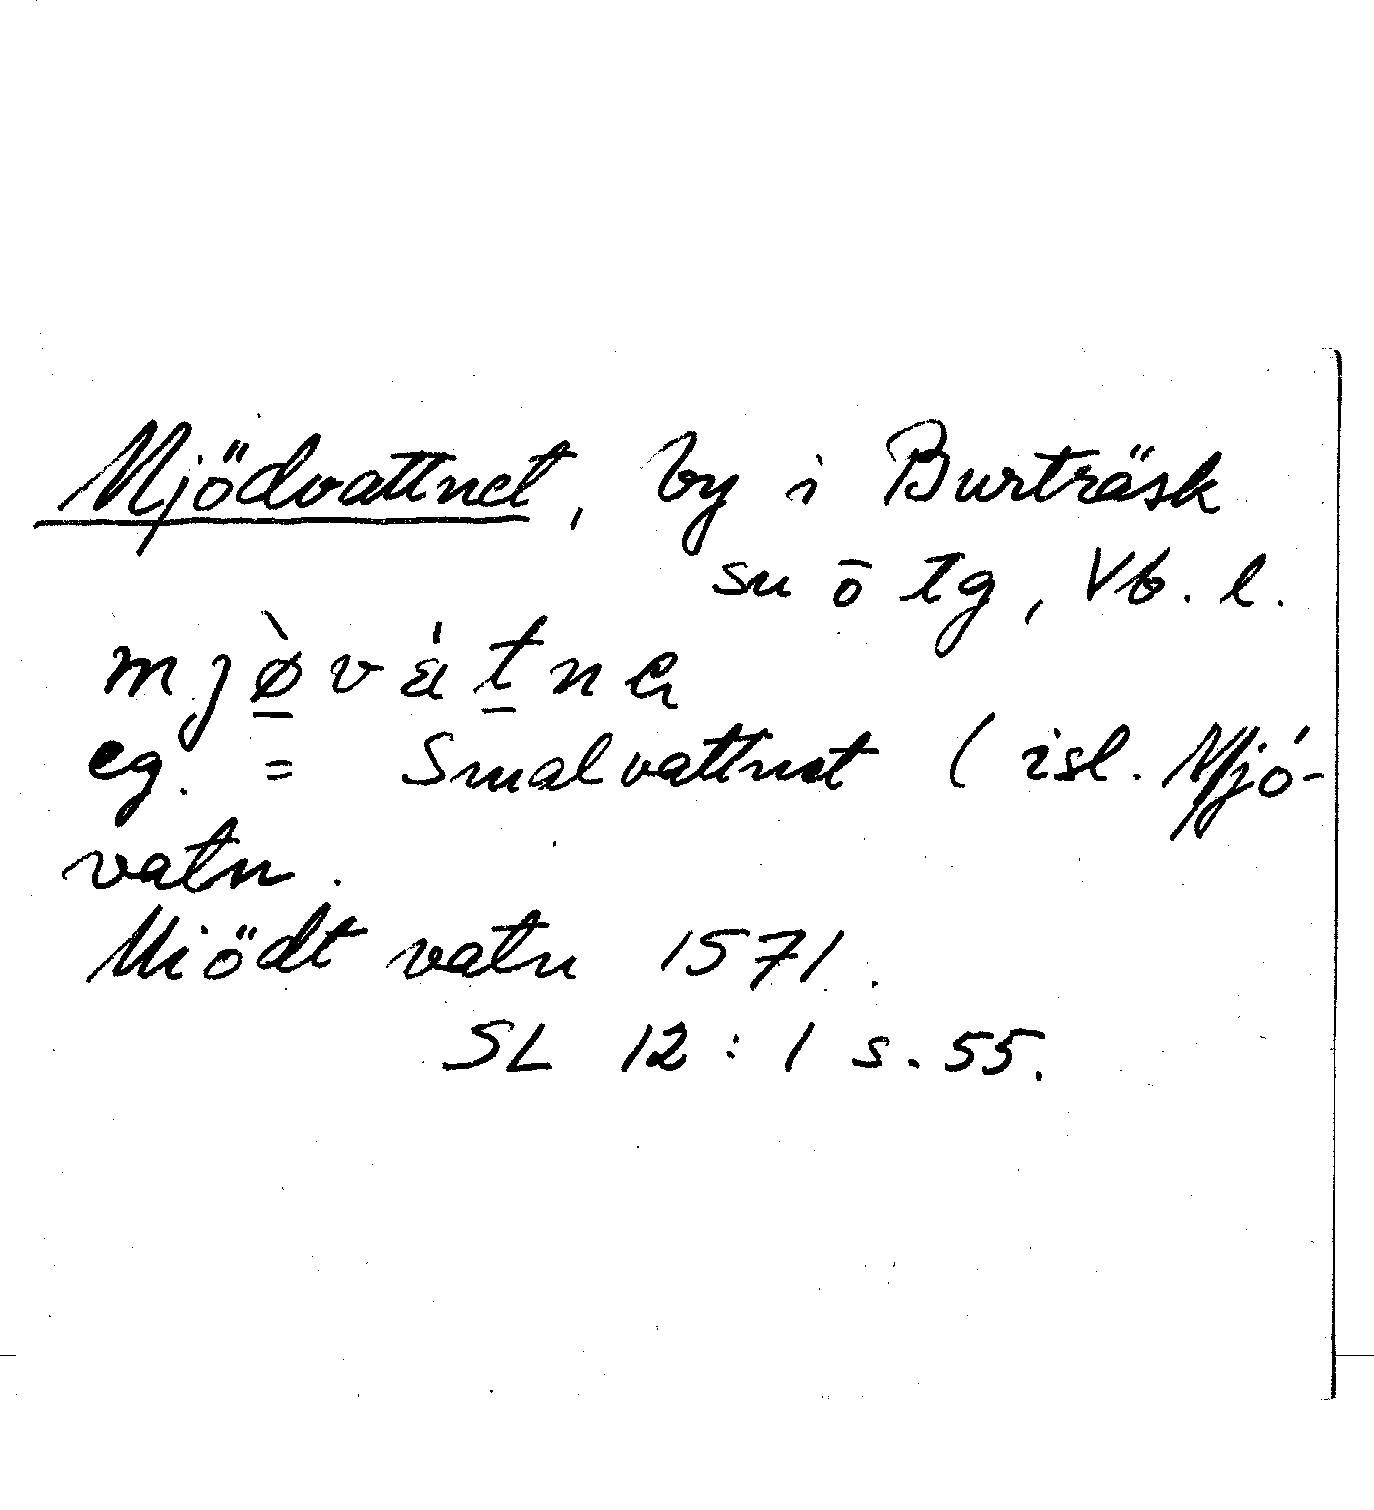 Mjödvattnet, by i Burträsk
sn ō tg, Vb. l.
eg. = Smalvattnet (isl. Mjó-
vatn.
Miödt vatn 1571.
SL 12:1 s. 55.